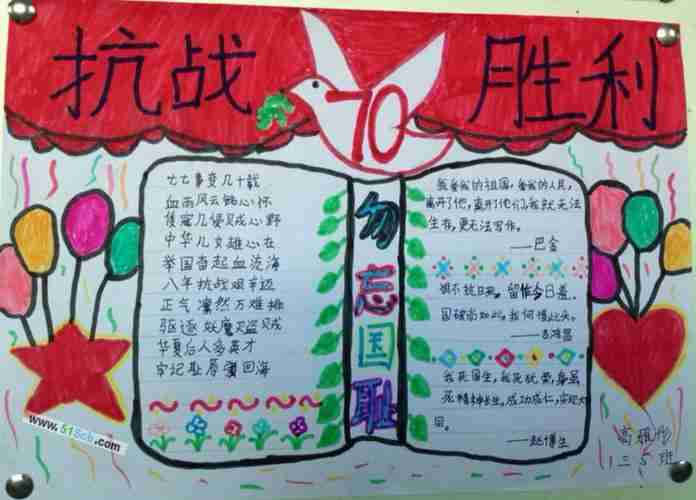 抗战 70 胜利
七七事变几十载
血雨风云铭心怀
倭寇几侵贝戎心野
中华儿女雄心在
举国奋起血流海
八年抗战艰辛迈
正气凛然万难排
驱逐妖魔灭盗贼
华夏后人多英才
牢记耻辱震四海
勿忘国耻
我爱我的祖国，爱我的人民，
离开了他，离开了他们，我就无法
生存，更无法写作。
——巴金
恨不抗日死，留作今日羞。
国破尚如此，我何惜此头。
——吉鸿昌
我死国生，我死犹荣，身虽
死精神长生，成功成仁，实现大
同。
——赵博生
三5班
www.51Scb.com